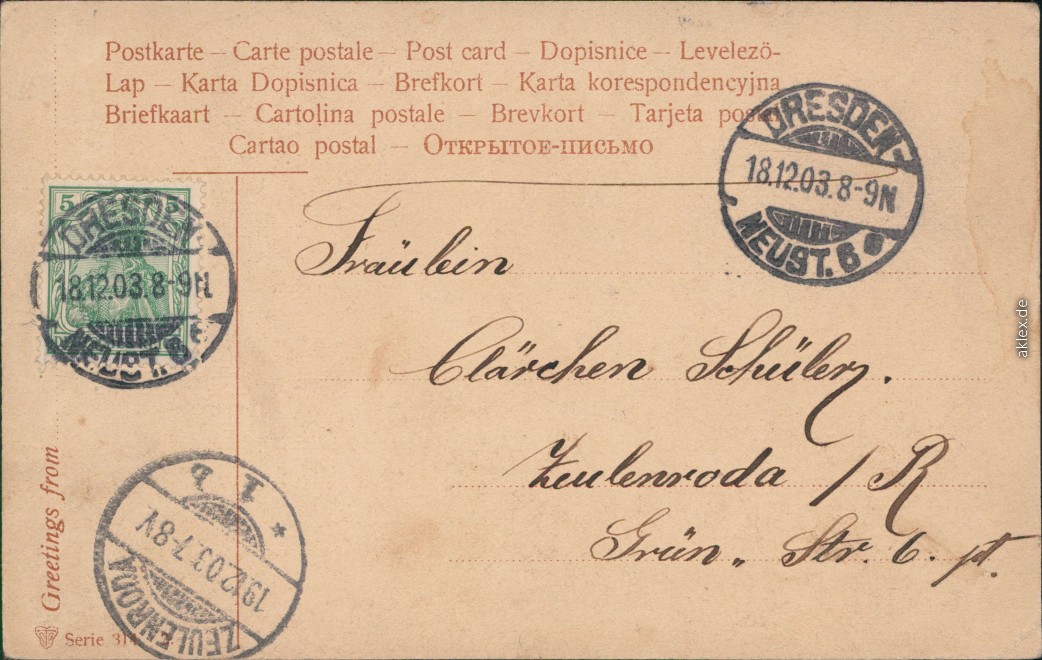 Postkarte – Carte postale – Post card – Dopisnice – Levelezö-
Lap – Karta Dopisnica – Brefkort – Karta korespondencyjna
Briefkaart – Cartolina postale – Brevkort – Tarjeta postal
Cartao postal – Открытое-письмо
5 5
DRESDEN-
18.12.03.8-9N.
NEUST. 6
DRESDEN-
18.12.03.8-9N
NEUST. 6
Fräulein
Clärchen Schüler.
Zeulenroda / R
Grün„ Str. 6. pt.
Greetings from
1 b
*
19.12.03.7-8V
ZEULENRODA
Serie
aklex.de